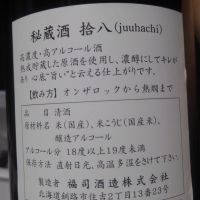 秘蔵酒 拾八(juuhachi)
高濃度・高アルコール酒
熟成貯蔵した原酒を使用し、濃醇にしてキレが
あり 心底"旨い"と云える仕上がりです。
【飲み方】オンザロックから熱燗まで
品 目 清酒
原材料名 米(国産)、米こうじ(国産米)、
醸造アルコール
アルコール分 18度以上19度未満
保存方法 直射日光、高温多湿をさけて下さい。
製造者 福司酒造株式会社
北海道釧路市住吉2丁目13番23号